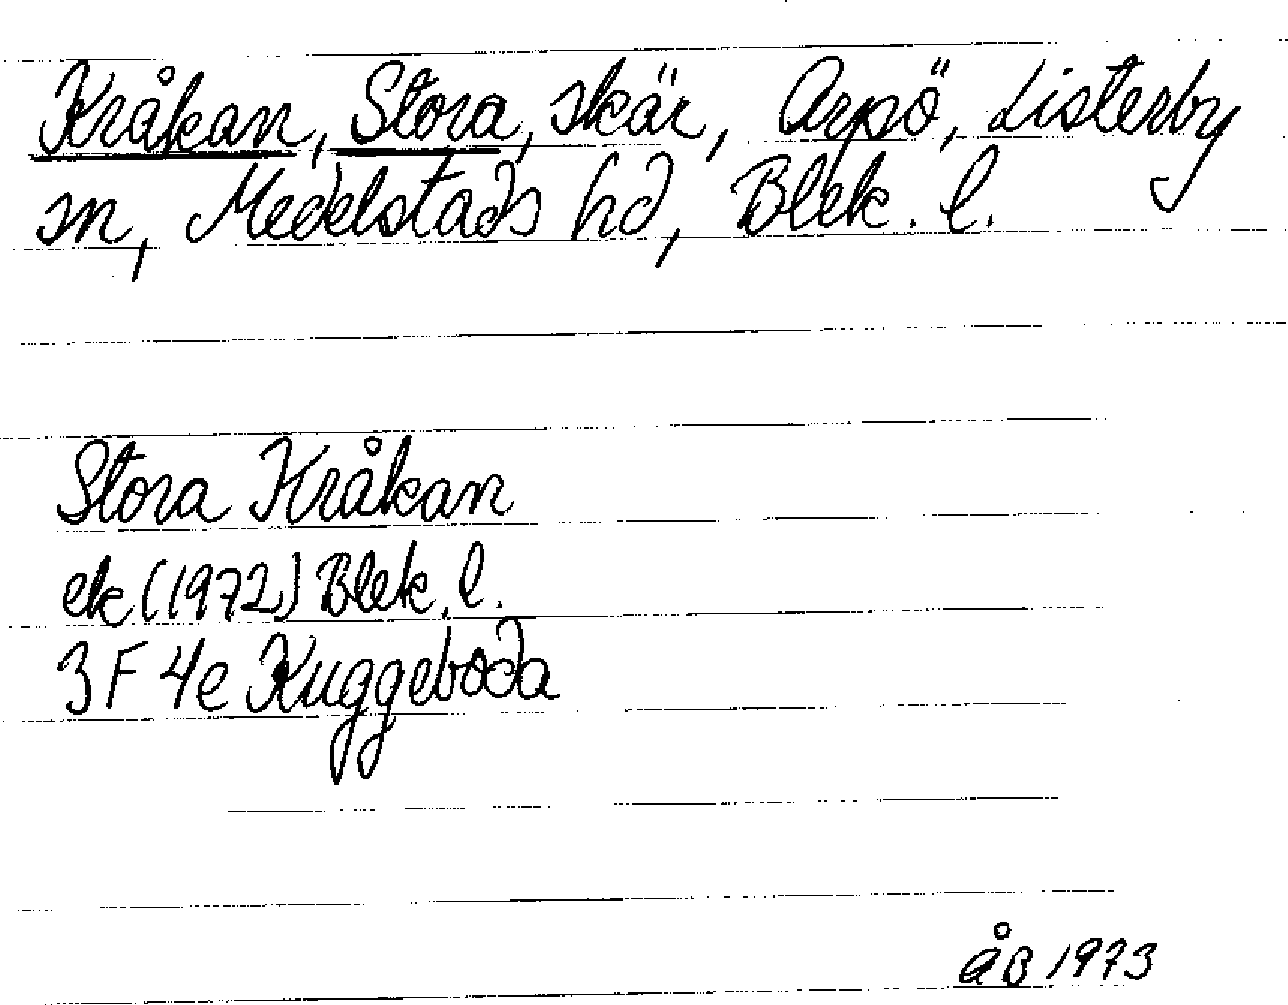 Kråkan, Stora, skär, Arpö, Listerby
sn, Medelstads hd, Blek. l.
Stora Kråkan
ek (1972) Blek. l.
3 F 4e Kuggeboda
åB 1973